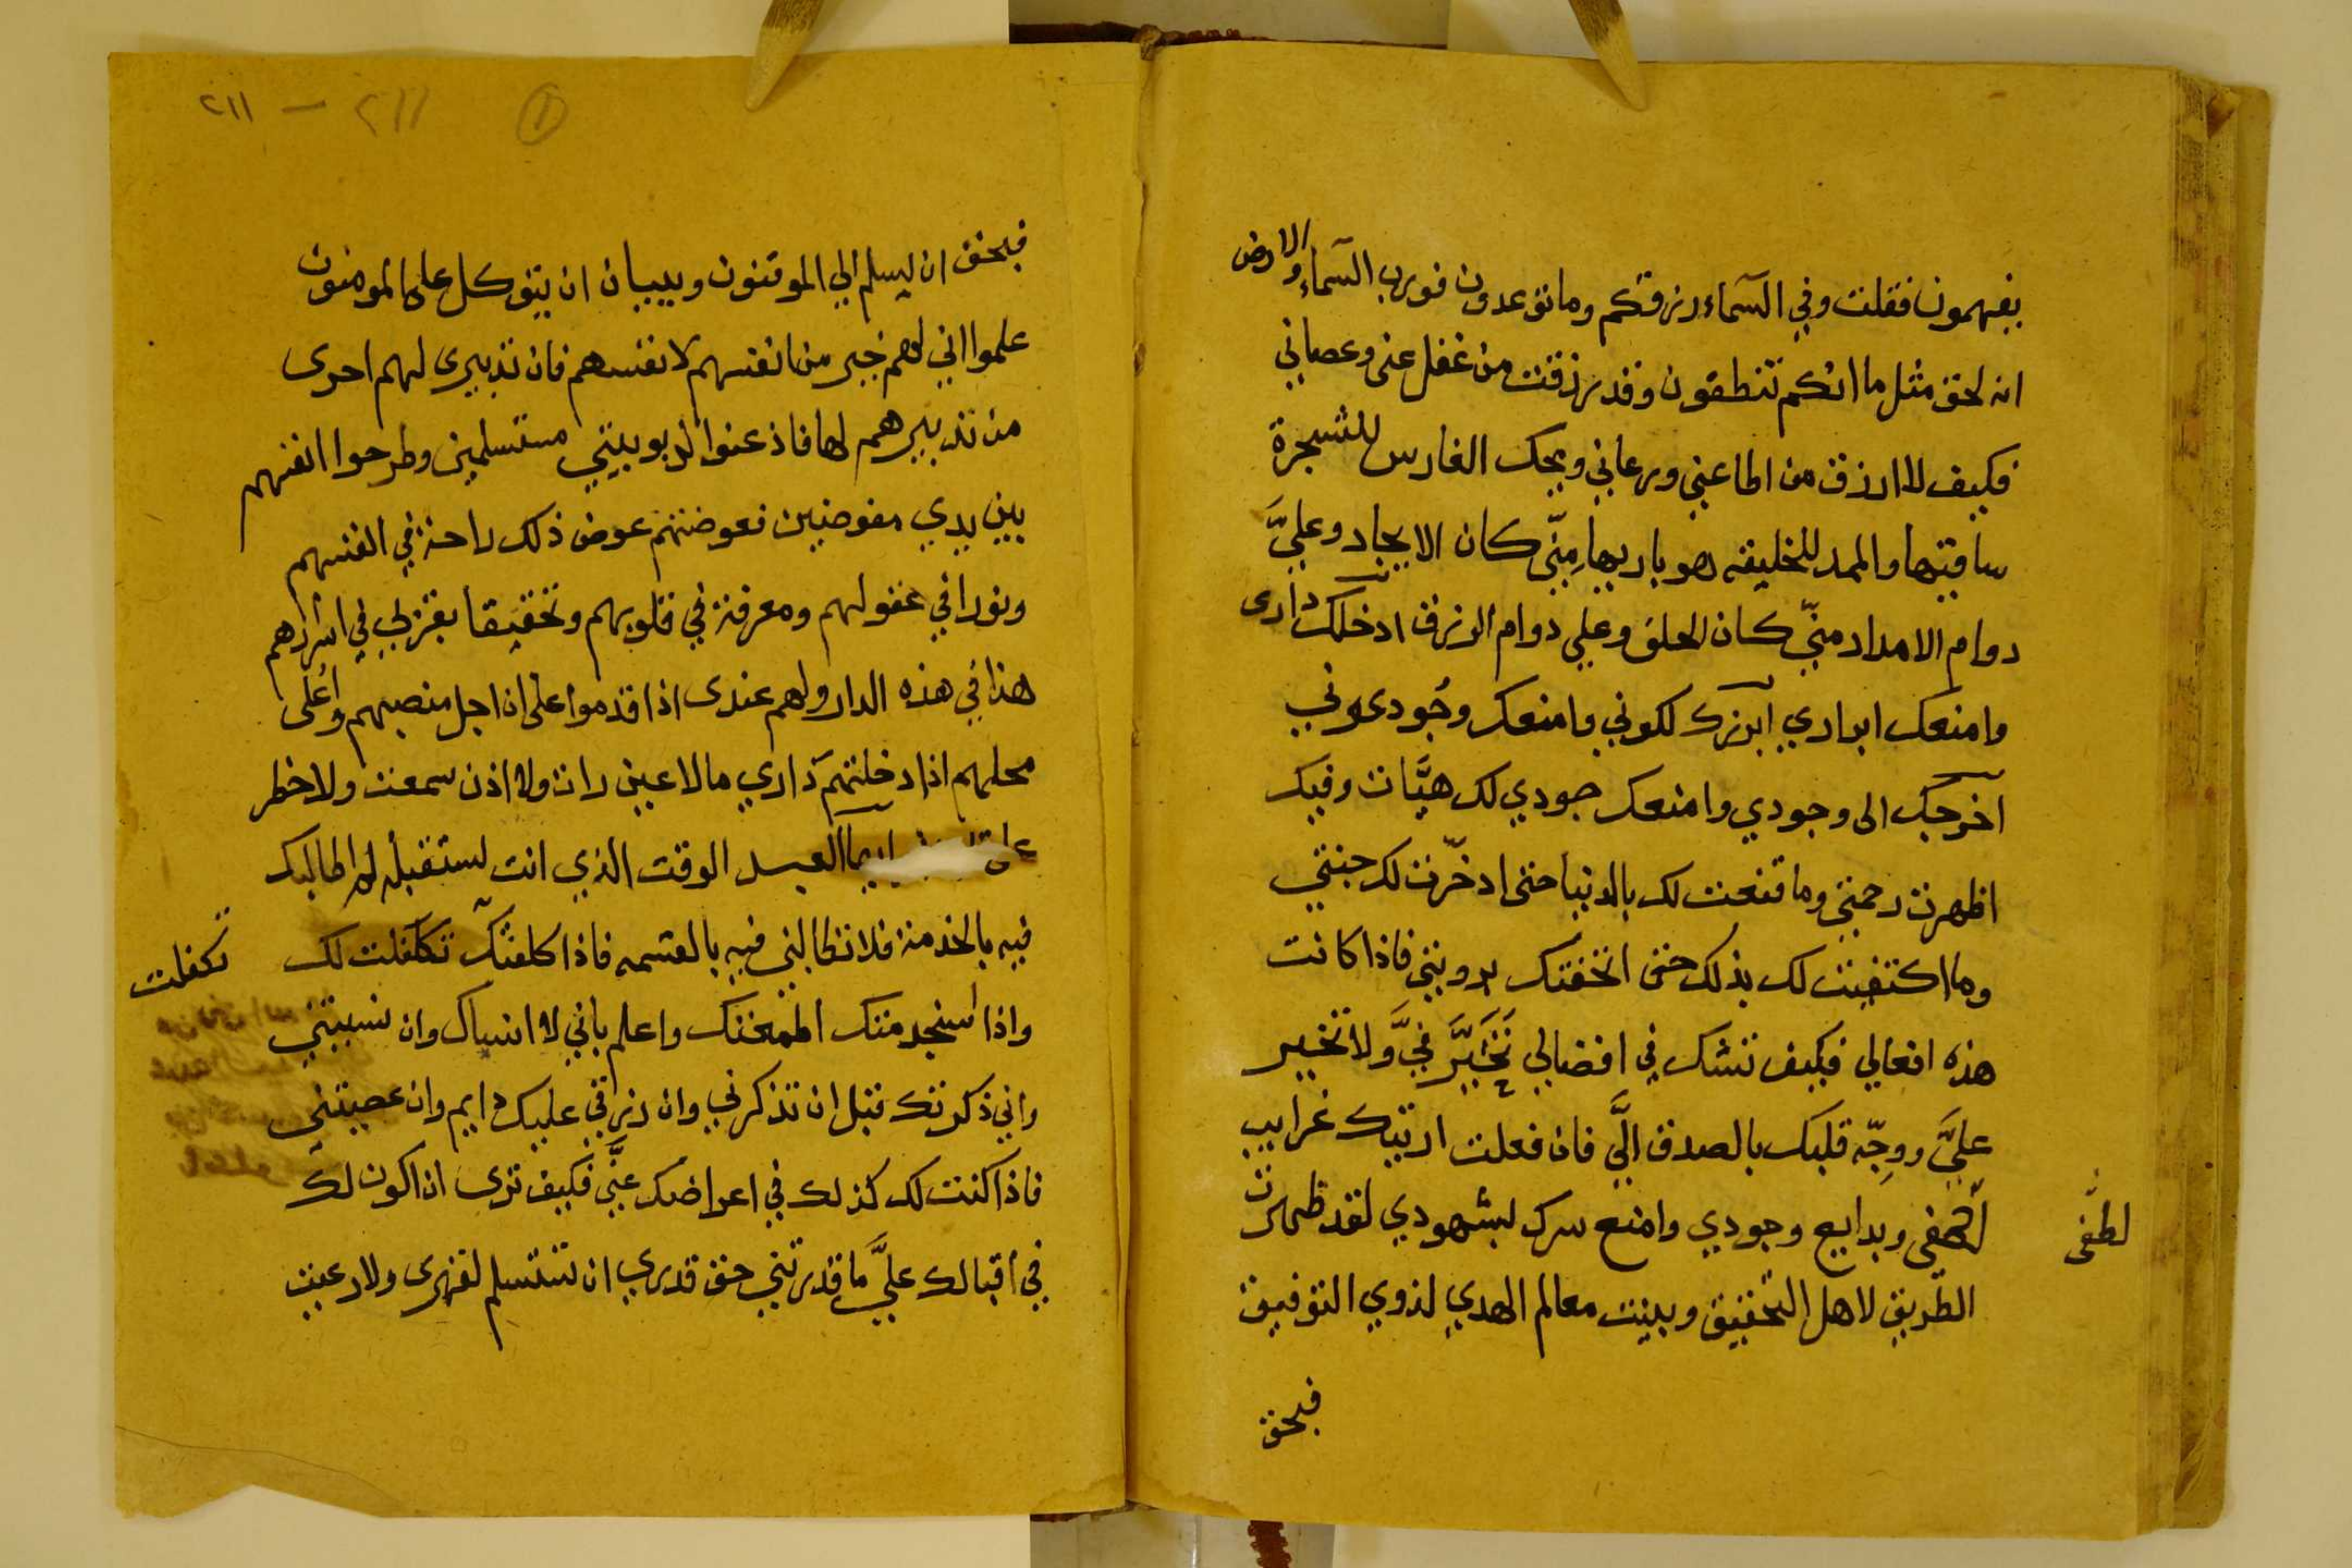 يفهمون فقلت وفي السمآء رزقكم وما توعدون فورب السمآء والارض
انه لحق مثل ما انكم تنطقون وقد رزقت من غفل عنى وعصاني
فكيف لا ارزق من اطاعني ورعاني ويحك الغارس للشجرة
ساقيها والممد للخليقه هو باريها مِنّي كان الايجاد وعليَّ
دوام الامداد منّي كان الخلق وعلي دوام الرزق ادخلك دارى
وامنعك ابرادي ابرزك لكوني وامنعك وجُودعوني
آخرجك الى وجودي وامنعك جودي لك هيَّات وفيك
اظهرت رحمتي وما قنعت لك بالدنيا حتى ادخّرت لك جنتي
وما اكتفيت لك بذلك حتى اتحفتك برويتي فاذا كانت
هذه افعالي فكيف تشك في افضالي تَخَيَّرَ فيَّ ولا تخير
عليَّ ووجّه قلبك بالصدق الَّي فان فعلت اريتك غرايب
لطفي وبدايع وجودي وامنع سرك بشهودي لقد ظهرت
لطفى
الطريق لاهل التحقيق وبينت معالم الهدي لذوي التوفيق
فبحق
٢١١ — ٢١١ ①
فبحق ان يسلم الي الموقنون وببيان ان يتوكل على المومنون
علموا اني لهم خير من انفسهم لانفسهم فان تدبيرى لهم احرى
من تدبيرهم لها فاذعنوا لربوبيتي مستسلمين وطرحوا انفسهم
بين يدي مفوضين فعوضتهم عوض ذلك راحة في انفسهم
ونورا في عقولهم ومعرفة في قلوبهم وتحقيقا بقربي في اسرارهم
هذا في هذه الدار ولهم عندى اذا قدموا على ان اجل منصبهم واُعلى
محلهم اذا دخلتهم داري مالا عين رات ولا اذن سمعت ولا خطر
على ايها العبد الوقت الذي انت تستقبله لم اطالبك
فيه بالخدمة فلا تطالبني فيه بالقسمه فاذا كلفتك تكلفلت لك
تكفلت
واذا استخدمتك اطمعتك واعلم باني لا انساك وان نسيتني
واني ذكرتك قبل ان تذكرني وان رزقي عليك دايم وان عصيتني
فاذا كنت لك كذلك في اعراضك عنَّي فكيف ترى ان اكون لك
في اقبالك عليَّ ما قدرتني حق قدري ان تستسلم لقهرى ولا رعيت